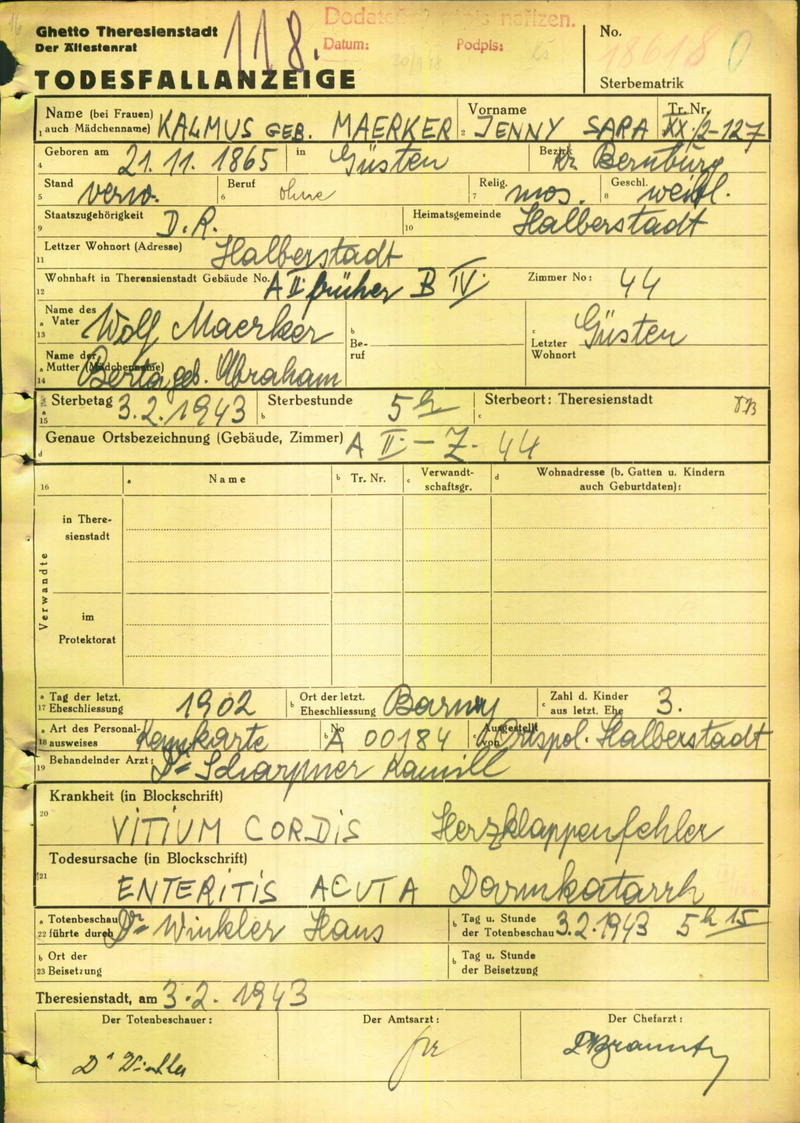 Ghetto Theresienstadt
Der Ältestenrat
118.
Datum:
Podpis:
No.
18618
Sterbematrik
TODESFALLANZEIGE
Name (bei Frauen) auch Mädchenname) KALMUS GEB. MAERKER
1
Vorname JENNY SARA
2
Tr. Nr. XX/2-127
3
Geboren am 21. 11. 1865 in Güsten Bezirk Kr Bernburg
4
Stand verw. Beruf ohne Relig. mos. Geschl. weibl.
5 6 7 8
Staatszugehörigkeit D.R. Heimatsgemeinde Halberstadt
9 10
Lettzer Wohnort (Adresse) Halberstadt
11
Wohnhaft in Therensienstadt Gebäude No. A II früher B IV. Zimmer No: 44
12
Name des Vater Wolf Maerker Be-ruf Letzter Wohnort Güsten
13
Name der Mutter (Mädchenname) Berta geb. Abraham
14
Sterbetag 3.2.1943 Sterbestunde 5h Sterbeort: Theresienstadt
15
Genaue Ortsbezeichnung (Gebäude, Zimmer) A II. - Z. 44
16 a Name b Tr. Nr. c Verwandt-schaftsgr. d Wohnadresse (b. Gatten u. Kindern auch Geburtdaten):
Verwandte
in There-
sienstadt
im
Protektorat
a Tag der letzt. 17 Eheschliessung 1902 b Ort der letzt. Eheschliessung c Zahl d. Kinder aus letzt. Ehe 3.
a Art des Personal- 18 ausweises Kennkarte b No A 00184 c Ausgestellt von Ortspol. Halberstadt
Behandelnder Arzt: Dr Kamill
19
Krankheit (in Blockschrift)
20
VITIUM CORDIS Herzklappenfehler
Todesursache (in Blockschrift)
21
ENTERITIS ACUTA Darmkatarrh
a Totenbeschau 22 führte durch Dr Winkler Hans b Tag u. Stunde der Totenbeschau 3.2.1943 5h 15
b Ort der 23 Beisetzung b Tag u. Stunde der Beisetzung
Theresienstadt, am 3.2.1943
Der Totenbeschauer: Der Amtsarzt: Der Chefarzt: